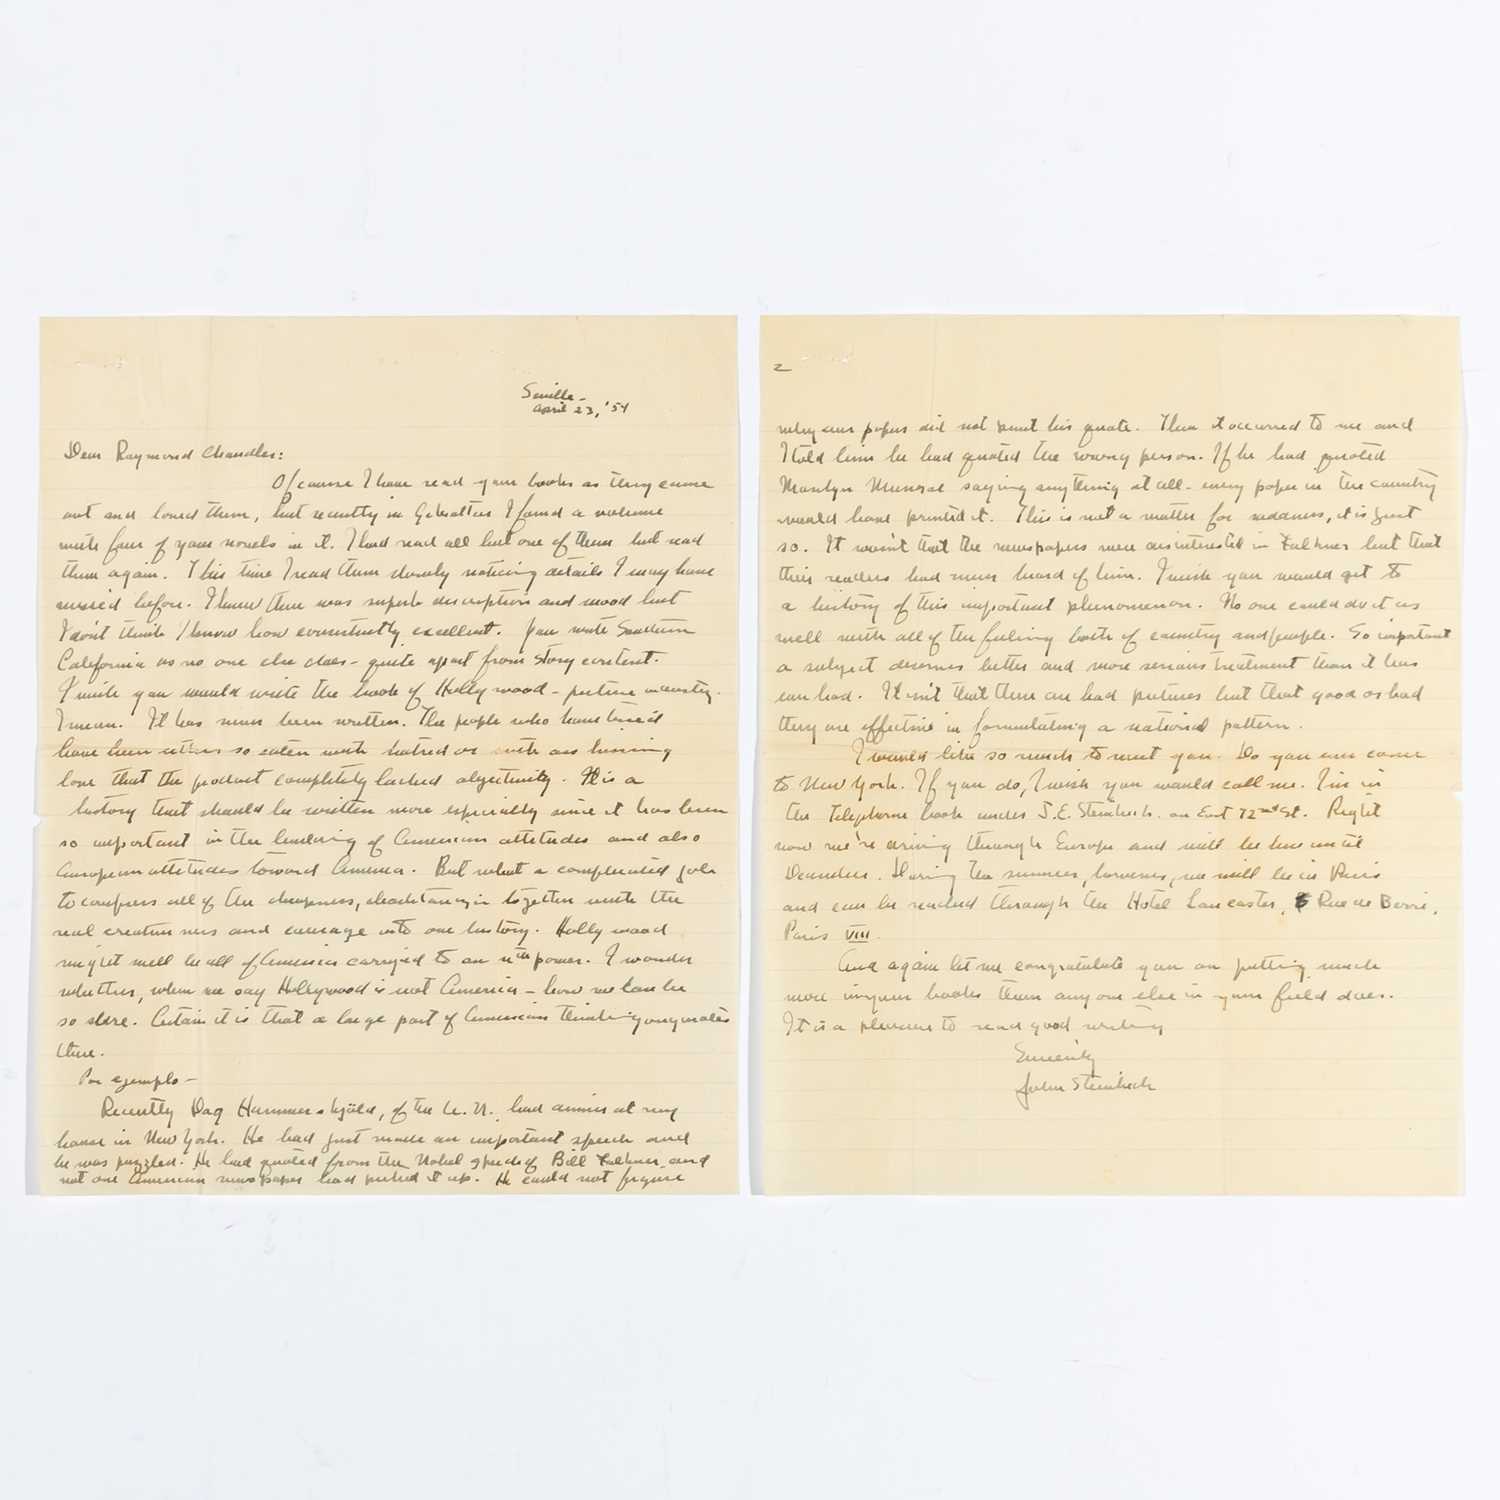 Seville –
April 23, '54
Dear Raymond Chandler:
Of course I have read your books as they came
out and loved them, but recently in Gibraltar I found a volume
with four of your novels in it. I had read all but one of them but read
them again. This time I read them slowly noticing details I may have
missed before. I knew there was superb description and mood but
I don't think I knew how consistently excellent. You write Southern
California as no one else does – quite apart from story content.
I wish you would write the book of Hollywood – picture industry
I mean. It has never been written. The people who have tried
have been either so eaten with hatred or with ass kissing
love that the product completely lacked objectivity. It is a
history that should be written more especially since it has been
so important in the of American attitudes and also
European attitudes toward America. But what a complicated job
to compress all of the cheapness, charlatanry in together with the
real creativeness and courage into one history. Hollywood
might well be all of America carryied to an nth power. I wonder
whether, when we say Hollywood is not America – how we can be
so sure. Certain it is that a large part of American thinking originates
there.
Por ejemplo –
Recently Dag Hammerskjöld, of the U.N. had dinner at my
house in New York. He had just made an important speech and
he was puzzled. He had quoted from the Nobel speech of Bill Falkner and
not one American newspaper had picked it up. He could not figure
2
why our papers did not print his quote. Then it occurred to me and
I told him he had quoted the wrong person. If he had quoted
Marilyn Munroe saying anything at all – every paper in the country
would have printed it. This is not a matter for sadness, it is just
so. It wasn't that the newspapers were disinterested in Falkner but that
their readers had never heard of him. I wish you would get to
a history of this important phenomenon. No one could do it as
well with all of the feeling both of country and people. So important
a subject deserves better and more serious treatment than it has
ever had. It isn't that there are bad pictures but that good or bad
they are effective in formulating a national pattern.
I would like so much to meet you. Do you ever come
to New York. If you do, I wish you would call me. I'm in
the telephone book under J.E. Steinbeck. on East 72nd St. Right
now we're driving through Europe and will be here until
December. During the summer, however, we will be in Paris
and can be reached through the Hotel Lancaster, Rue de Berri,
Paris VIII.
And again let me congratulate you on putting much
more in your books than anyone else in your field does.
It is a pleasure to read good writing
Sincerely
John Steinbeck